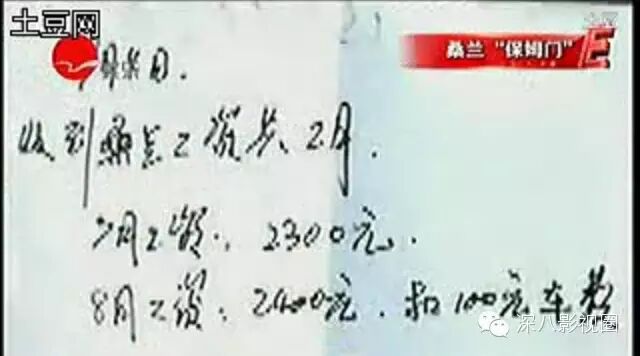 土豆网
桑兰“保姆门”
E
收到 工资共2月.
7月工资:2300元.
8月工资:2400元.和100元车费
深八影视圈